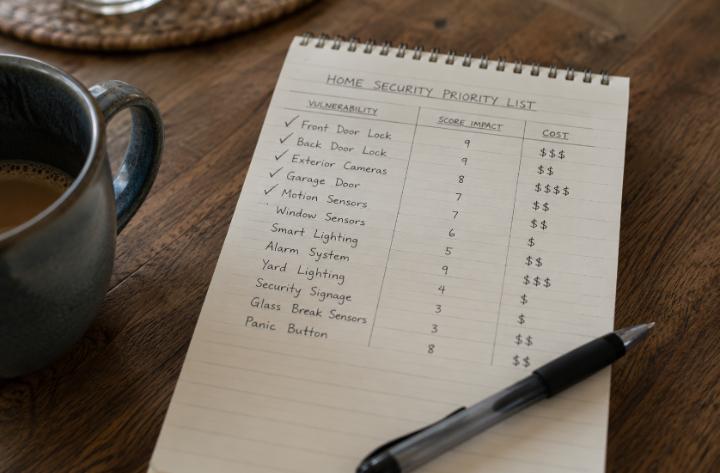 HOME SECURITY PRIORITY LIST
VULNERABILITY SCORE IMPACT COST
✓ Front Door Lock 9 $$$
✓ Back Door Lock 9 $$
✓ Exterior Cameras 8 $$$$
✓ Garage Door 7 $$
✓ Motion Sensors 7 $$
Window Sensors 6 $
Smart Lighting 5 $$
Alarm System 9 $$$
Yard Lighting 4 $
Security Signage 3 $
Glass Break Sensors 3 $$
Panic Button 8 $$